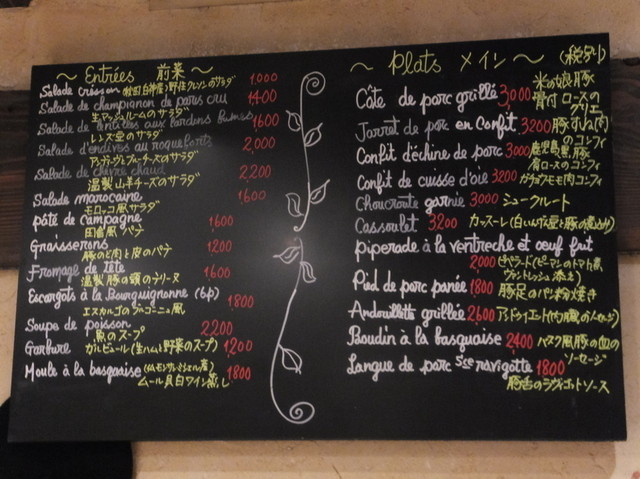 ～ Entrées 前菜 ～
Salade cresson (秋田白神産)野生クレソンのサラダ 1,000
Salade de champignon de paris cru 1400
生マッシュルームのサラダ
Salade de lentilles aux lardons fumés 1600
レンズ豆のサラダ
Salade d'endives au roquefort 2,000
アンディーヴとブルーチーズのサラダ
Salade de chèvre chaud 2,200
温製山羊チーズのサラダ
Salade marocaine 1600
モロッコ風サラダ
pâté de campagne 1600
田舎風パテ
Graisserons 1200
豚のど肉と皮のパテ
Fromage de tête 1600
温製 豚の頭のテリーヌ
Escargots à la Bourguignonne (6p) 1800
エスカルゴのブルゴーニュ風
Soupe de poisson 2200
魚のスープ
Garbure ガルビュール(生ハムと野菜のスープ) 1,200
Moule à la basquaise (モンサンミッシェル産) 1800
ムール貝白ワイン蒸し
～ Plats メイン ～ (税別)
Côte de porc grillé 3,000 米の娘豚
骨付ロースのグリエ
Jarret de porc en Confit 3200 豚すね肉のコンフィ
Confit d'échine de porc 3000 鹿児島黒豚
肩ロースのコンフィ
Confit de cuisse d'oie 3200 ガチョウモモ肉コンフィ
Choucroute garnie 3000 シュークルート
Cassoulet 3200 カッスーレ(白いんげん豆と豚の煮込み)
piperade à la ventrèche et oeuf frit
2,000 ピペラード(ピーマンのトマト煮、
ヴァントレッシュ添え)
Pied de porc panée 1800 豚足のパン粉焼き
Andouillette grillée 2600 アンドゥイエット(内臓のソーセージ)
Boudin à la basquaise 2400 バスク風豚の血の
ソーセージ
Langue de porc sce ravigotte 1800
豚舌のラヴィゴットソース